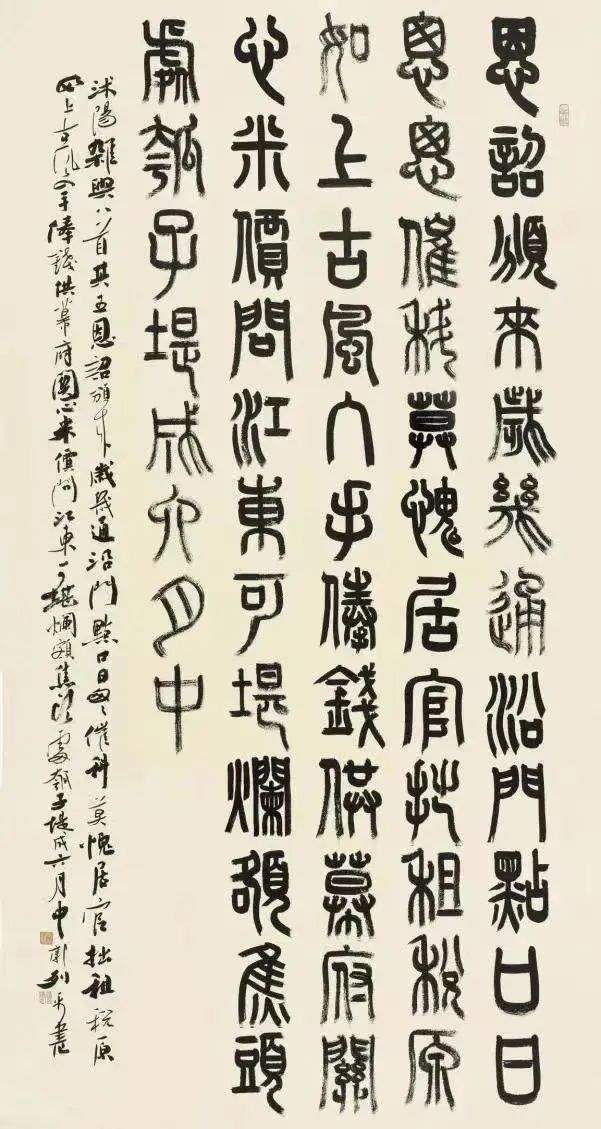 恩詔頒來歲幾通沿門點口日
悤悤催科莫愧居官拙租稅原
如上古風入手俸錢供幕府關
心米價問江東可堪爛額焦頭
處瓠子堤成六月中
沭陽雜興八首其五恩詔頒來歲幾通沿門點口日匆匆催科莫愧居官拙租稅原
如上古風入手俸錢供幕府關心米價問江東可堪爛額焦頭處瓠子堤成六月中 列平書